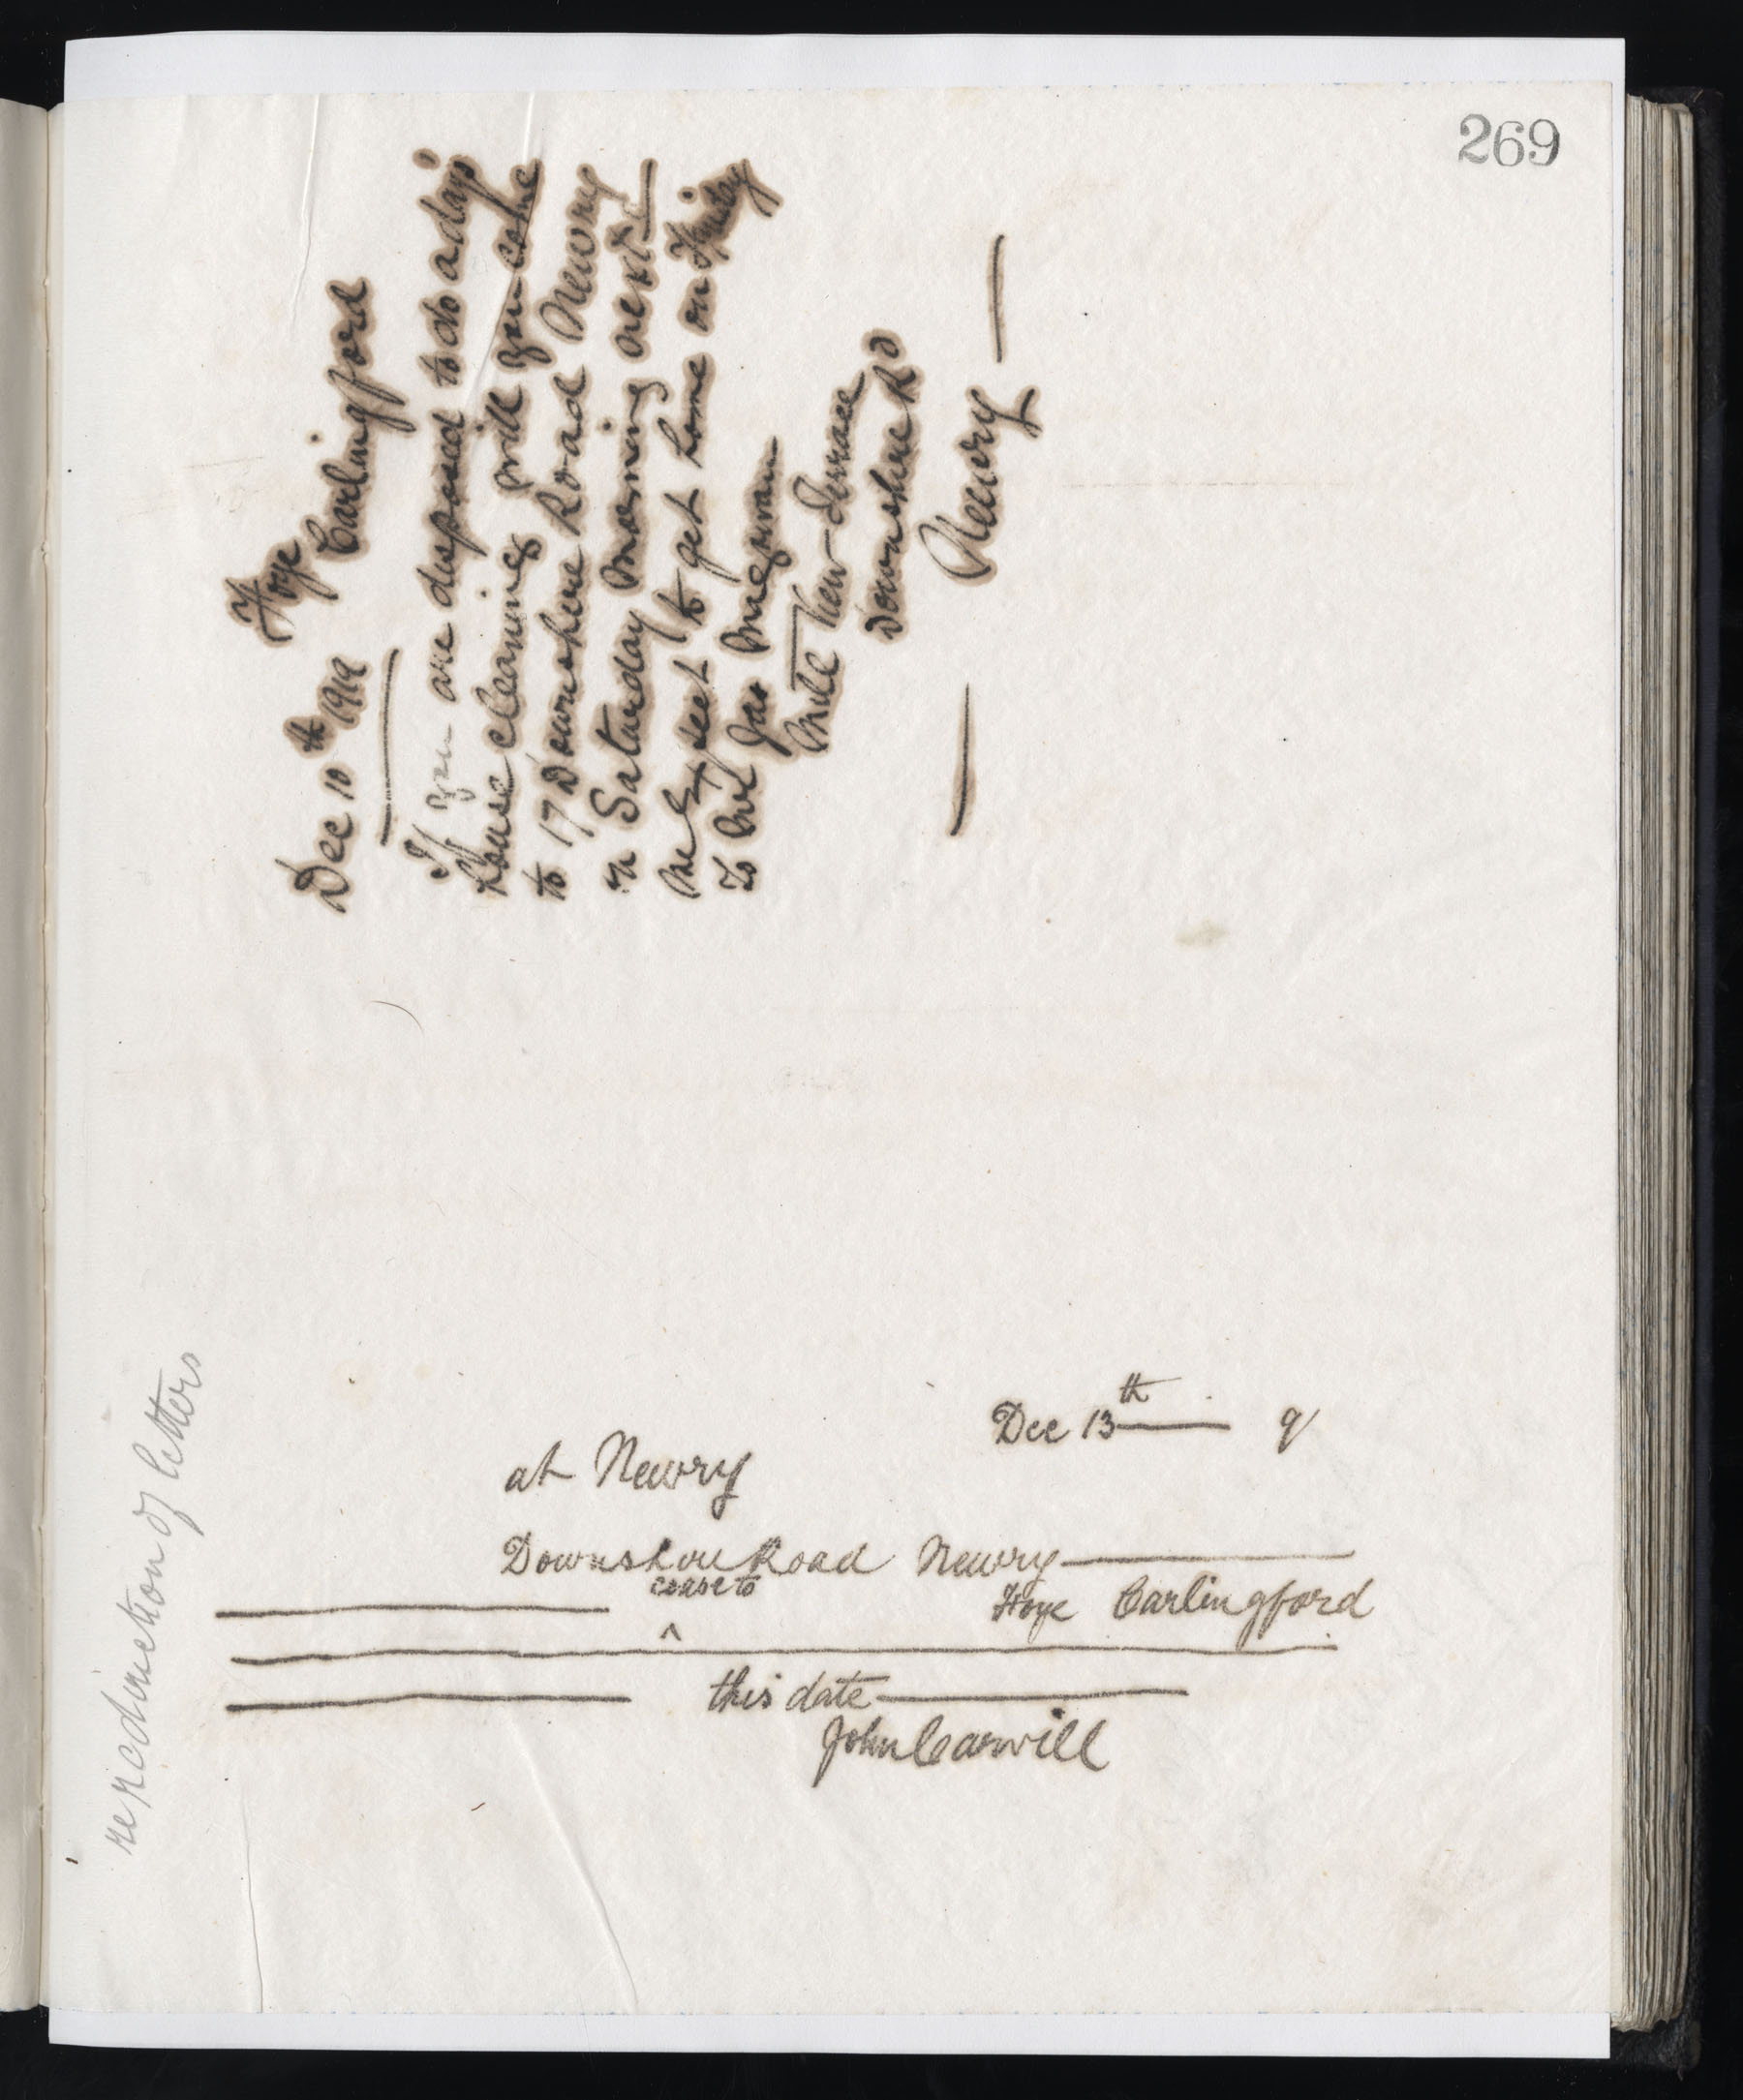 269
Foye
Carlingford
Dec 10th 1919
If you are disposed to do a day's
house cleaning will you come
to 17 Downshire Road Newry
on Saturday morning next
me expect to get home on Friday
To Mrs Jas Megivran
Mill View Terrace
Downshire Rd
Newry
Dec 13th 9
at Newry
Downshire Road Newry
cease to
^ Foye Carlingford
this date
John Carvill
re redirection of letters